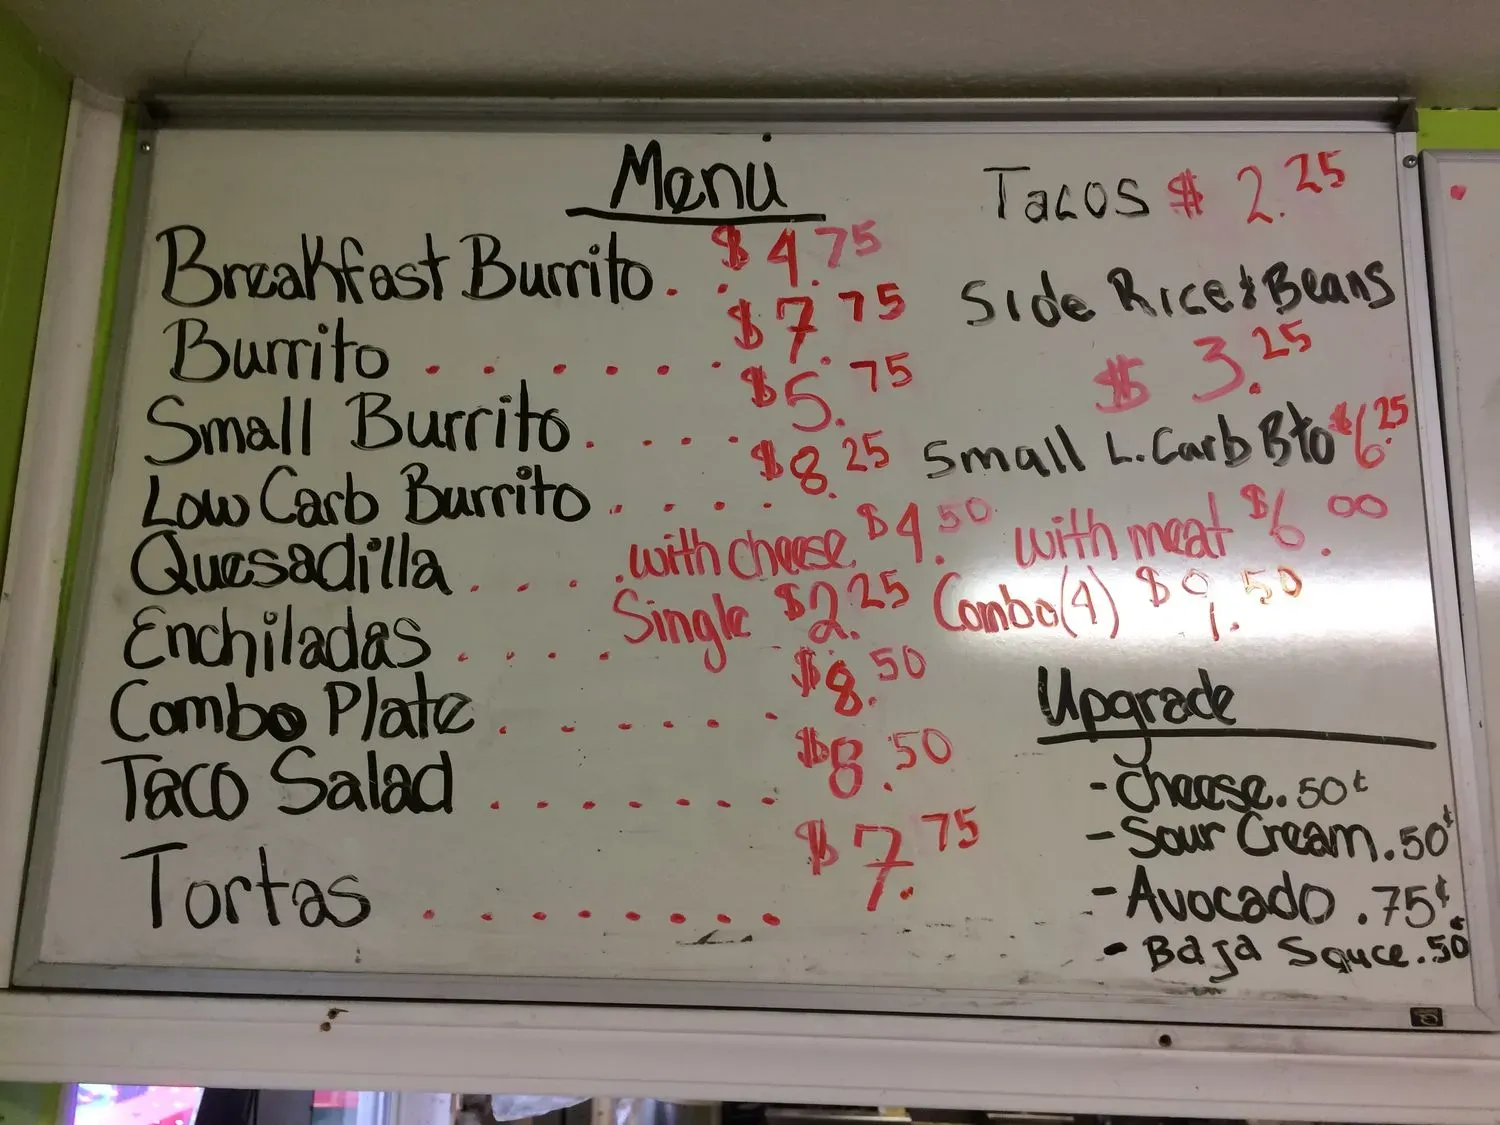 Menu
Breakfast Burrito. . $4.75
Burrito . . . . . . $7.75
Small Burrito. . . . $5.75
Low Carb Burrito . . . . $8.25
Quesadilla . . . . with cheese $4.50 with meat $6.00
Enchiladas . . . . Single $2.25 Combo(4) $9.50
Combo Plate . . . . . $8.50
Taco Salad . . . . . . . $8.50
Tortas . . . . . . . $7.75
Tacos $2.25
Side Rice & Beans
$3.25
Small L. Carb Bto $6.25
Upgrade
- Cheese .50¢
- Sour Cream .50¢
- Avocado .75¢
- Baja Sauce .50¢